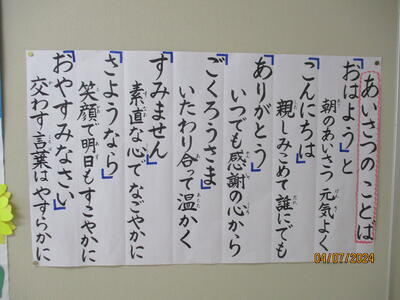 あいさつのことば
「おはよう」と
朝のあいさつ 元気よく
「こんにちは」
親しみこめて 誰にでも
「ありがとう」
いつでも感謝の心から
「ごくろうさま」
いたわり合って温かく
「すみません」
素直な心でなごやかに
「さようなら」
笑顔で明日もすこやかに
「おやすみなさい」
交わす言葉はやすらかに
04/07/2024